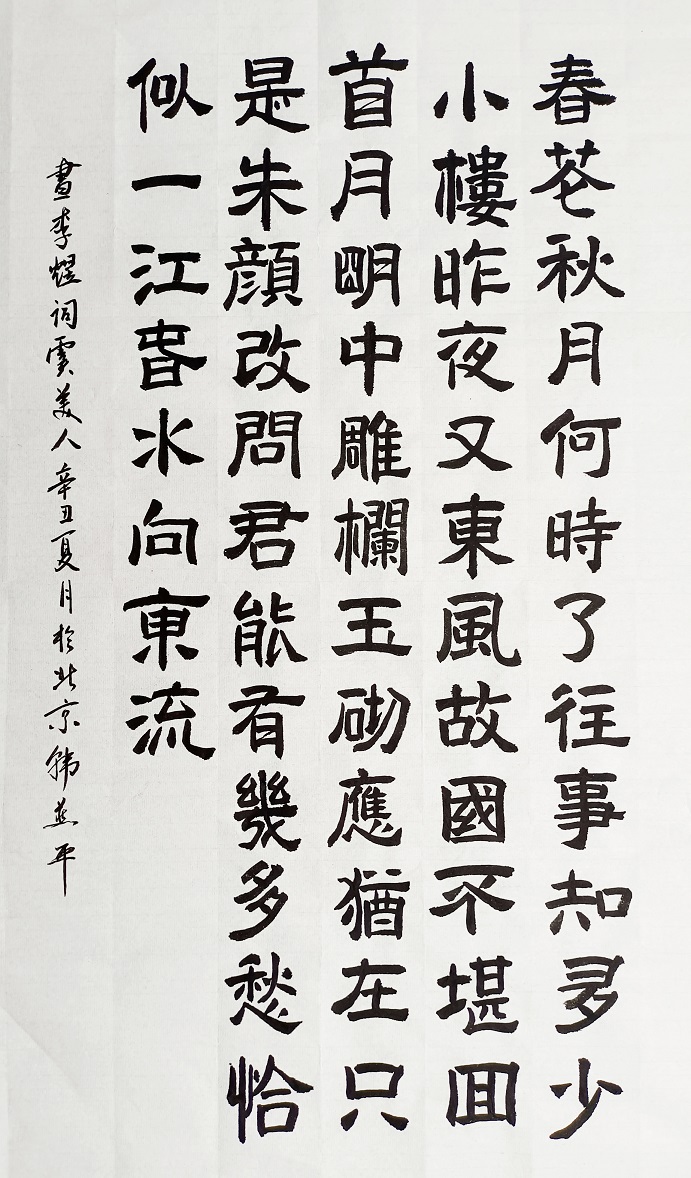 春花秋月何時了往事知多少
小樓昨夜又東風故國不堪回
首月明中雕欄玉砌應猶在只
是朱顏改問君能有幾多愁恰
似一江春水向東流
書李煜詞虞美人辛丑夏月於北京韩燕平